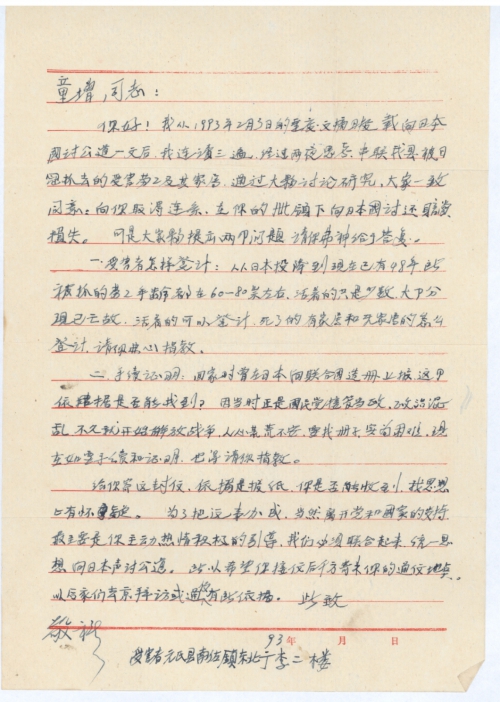 童增同志：
你好！我从1993年2月3日的 文摘 载向日本
国讨公道一文后，我连读三遍，经过两夜思考，串联我县被日
寇抓去的受害劳工及其家害，通过大夥讨论研究，大家一致
同意：向你取得连系，在你的 领下向日本国讨还 
损失。 可是大家夥提出两个问题请你 给予答复。
一.受害者怎样登计：从日本投降到现在已有48年 
被抓的劳工年令都在60—80岁左右，活着的只是少数，大部分
现已亡故，活着的可以登计，死了的有家属和无家属的怎么
登计，请 指教。
二.手续证明：回家时曾在日本向联合国造册上报，这个
依据是否能找到？因当时正是国民党 政，政治混
乱不久就开始解放战争，人心 荒不安，查找册子实为困难，现
在如要手续和证明，也要请你指教。
给你写这封信，依据是报纸，你是否能收到，我思想
上有怀疑。 为了把这事办成，当然离开党和国家的支持
最主要是你主动热情积极的引导，我们必须联合起来，统一思
想向日本声讨公道。 所以希望你接信后千万寄来你的通信地点，
以后来们去京拜访或通信有所依据。 此致
敬礼
93年 月 日
受害者元氏县南佐镇东北 李二楼